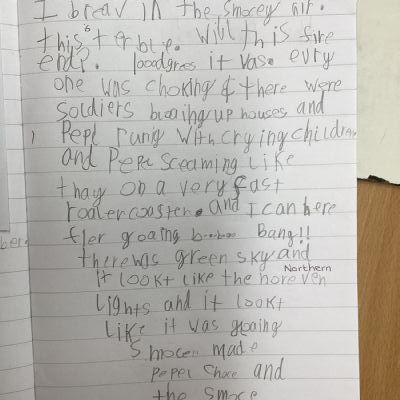 I breav in the smocey air.
this is terblue. Will this fire
end?. loodgrees it vase evry
one was choking & there were
soldiers blowing up houses and
Pepl rung with crying children
and Pepel screaming like
thay on a very fast
roalercoaster. and I can here
fier goaing b---boo Bang!!
there was green sky and
Northern
it lookt like the noreven
Lights and it lookt
Like it was goaing
Smocen made
Pepel choce and
the smoce